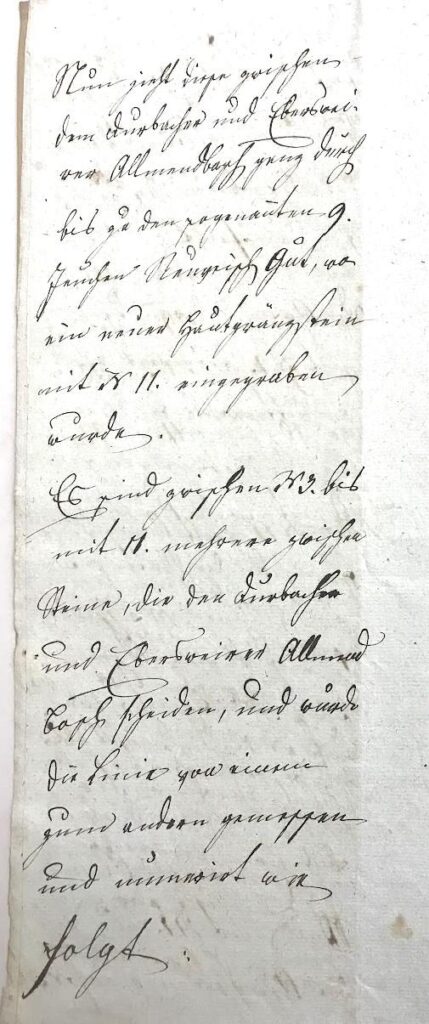 Nun zieht diese zwischen
dem Durbacher und Eberswei-
rer Allmendbosch ganz durch
bis zu den sogenannten 9.
Jeuchen Gut, wo
ein neuer Hautgränzstein
mit N 11. eingegraben
wurde.
Es sind zwischen N 3. bis
mit 11. mehrere zwischen
Steine, die den Durbacher
und Ebersweirer Allmend
Bosch scheiden, und wurde
die Linie von einem
zum andern gemessen
und numerirt wie
folgt: